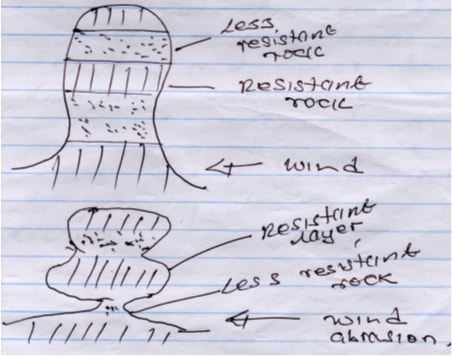 Less
resistant
rock
Resistant
rock
wind
Resistant
layer
Less resistant
rock
wind
abrasion.